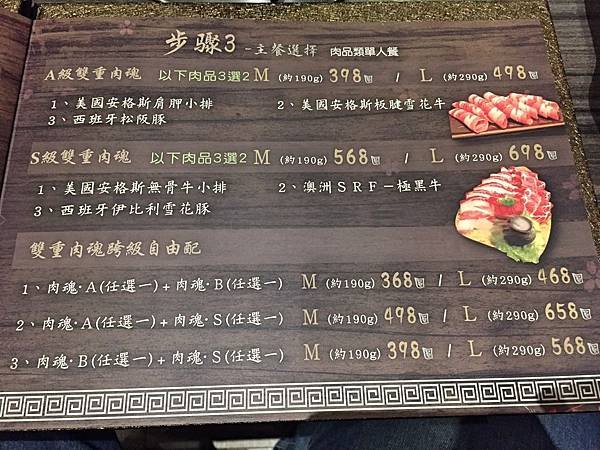 步驟3 -主餐選擇 肉品類單人餐
A級雙重肉魂 以下肉品3選2 M (約190g) 398 / L (約290g) 498
1、美國安格斯肩胛小排 2、美國安格斯板腱雪花牛
3、西班牙松阪豚
S級雙重肉魂 以下肉品3選2 M (約190g) 568 / L (約290g) 698
1、美國安格斯無骨牛小排 2、澳洲SRF-極黑牛
3、西班牙伊比利雪花豚
雙重肉魂跨級自由配
1、肉魂·A(任選一)+肉魂·B(任選一) M (約190g) 368 / L (約290g) 468
2、肉魂·A(任選一)+肉魂·S(任選一) M (約190g) 498 / L (約290g) 658
3、肉魂·B(任選一)+肉魂·S(任選一) M (約190g) 398 / L (約290g) 568